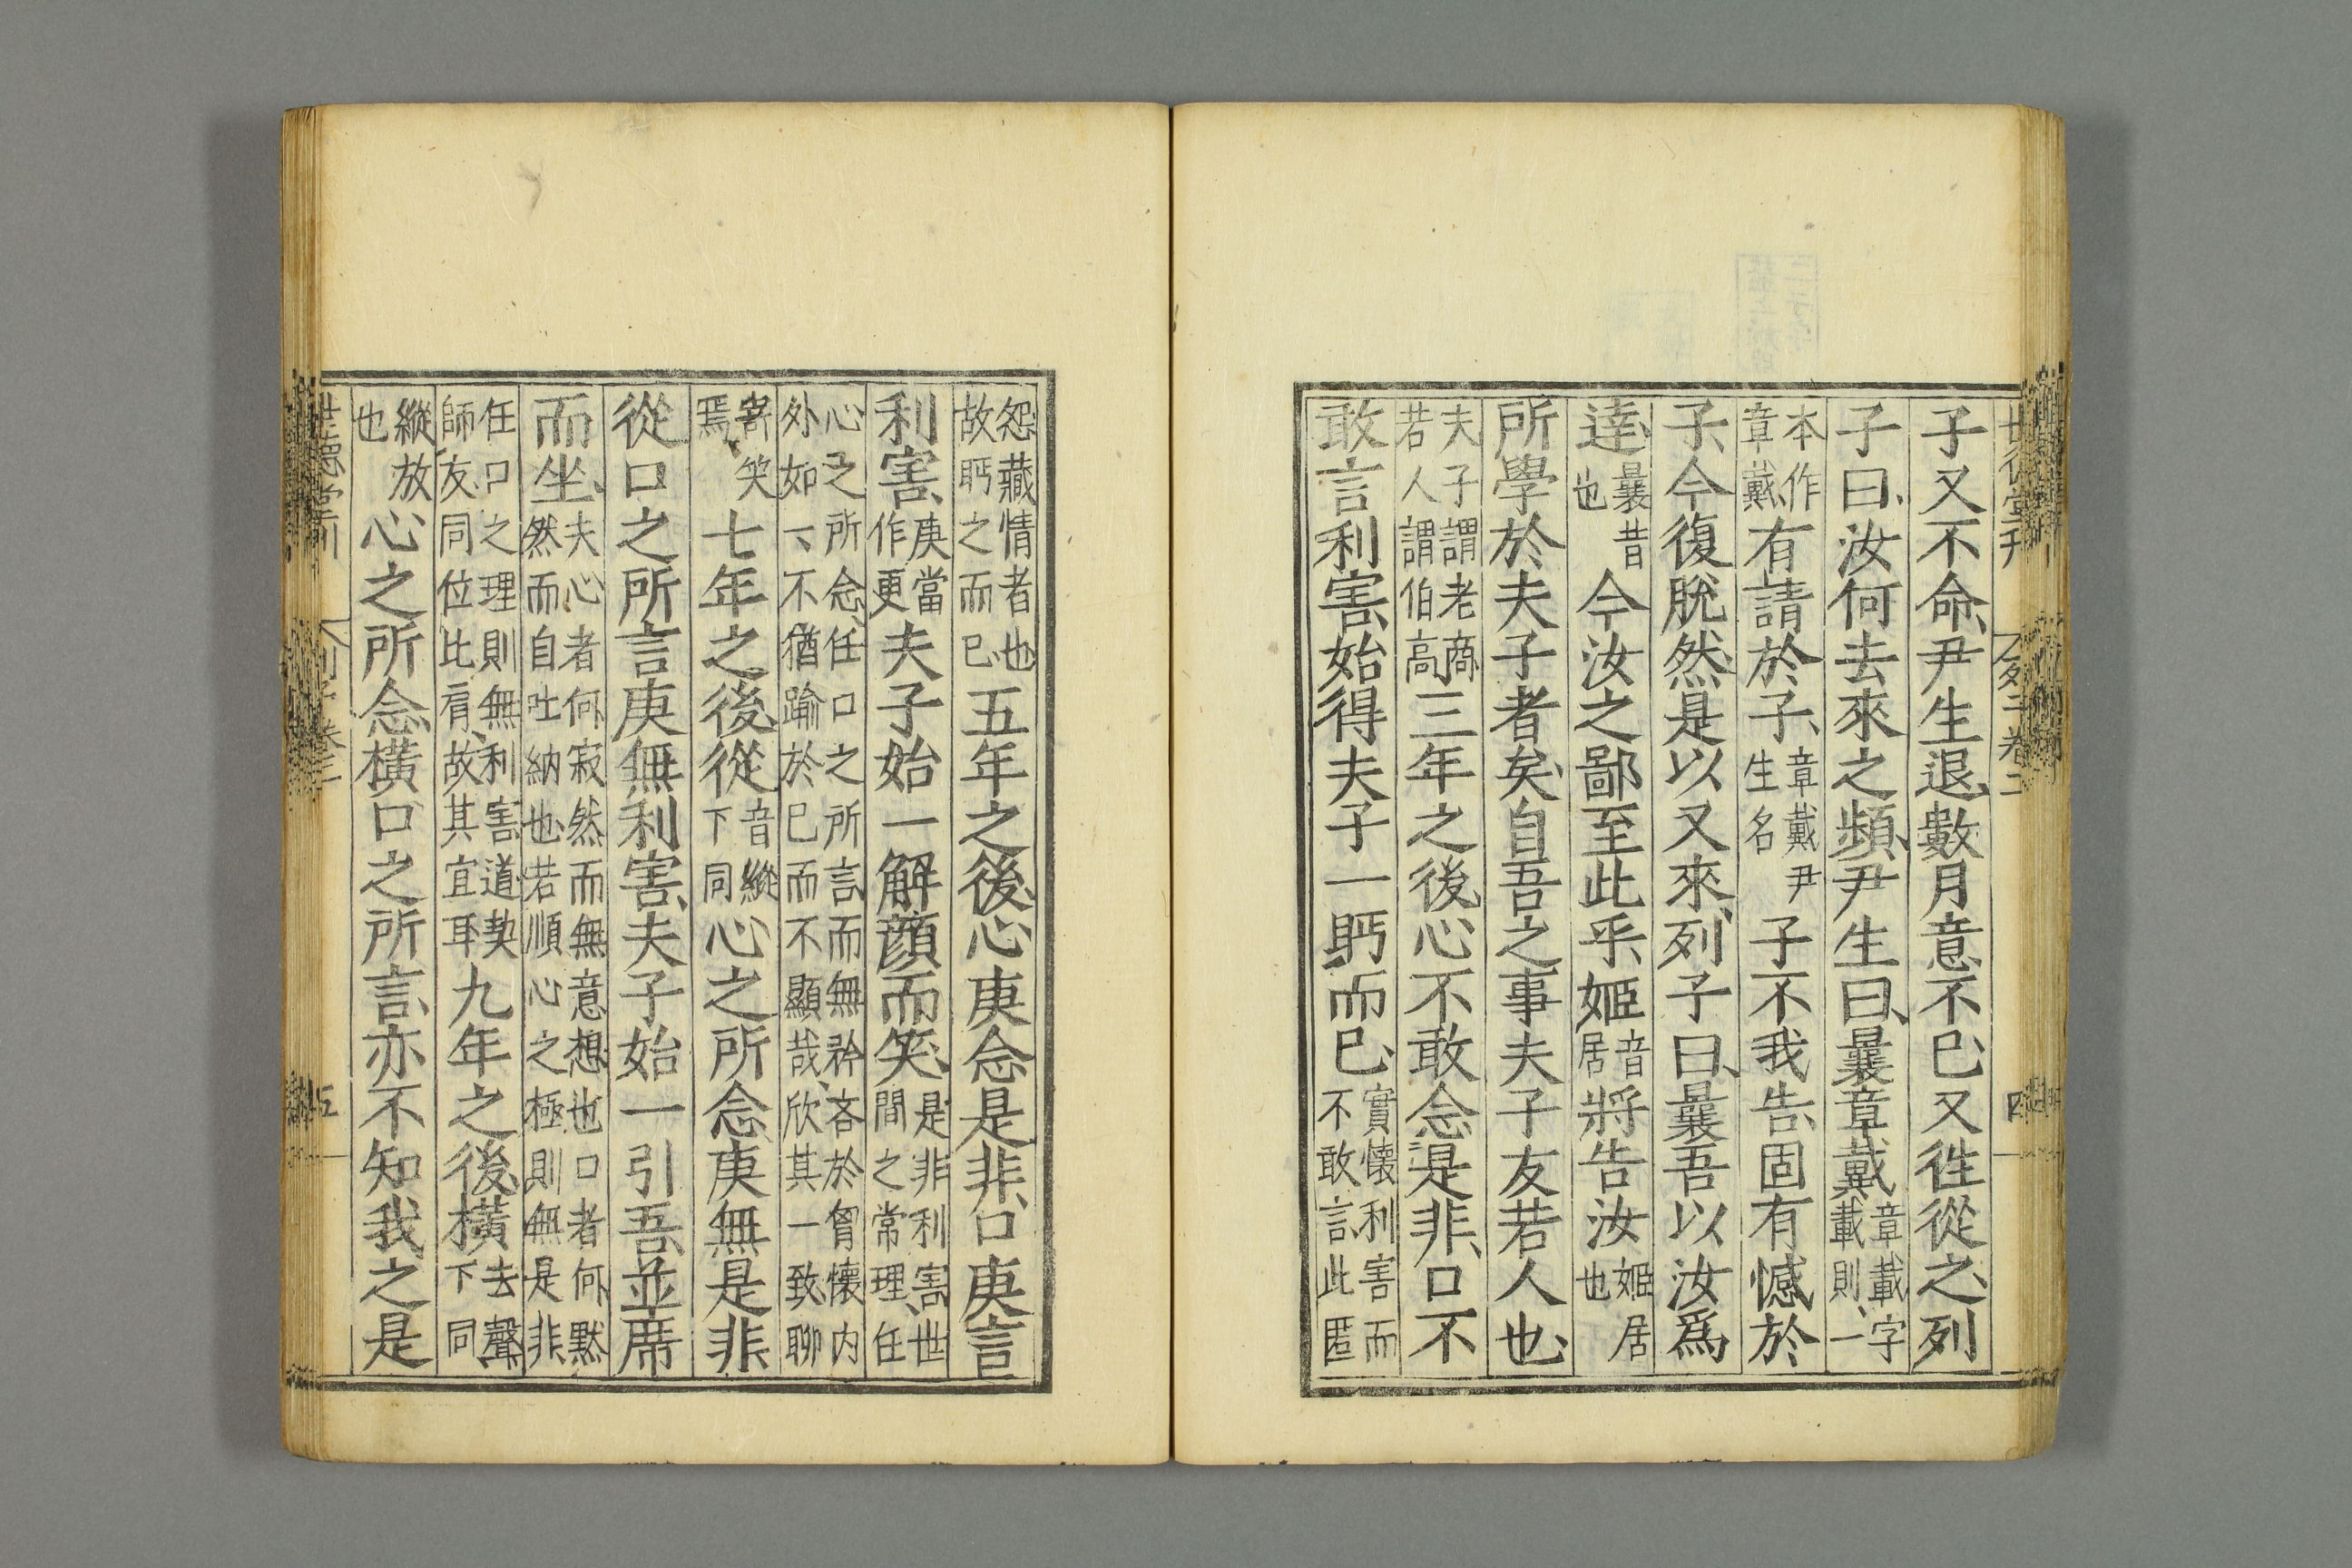 子又不命尹生退數月意不已又徃從之列
子曰汝何去來之頻尹生曰曩章戴章載字載則一
本作章戴有請於子章戴尹生名子不我告固有憾於
子今復脫然是以又來列子曰曩吾以汝爲
達曩昔也今汝之鄙至此乎姬音居將告汝姬居也
所學於夫子者矣自吾之事夫子友若人也
夫子謂老商若人謂伯高三年之後心不敢念是非口不
敢言利害始得夫子一眄而已實懐利害而不敢言此匿
怨藏情者也故眄之而已五年之後心庚念是非口庚言
利害庚當作更夫子始一解顔而笑是非利害世間之常理任
心之所念任口之所言而無矜吝於胷懐内外如一不猶踰於已而不顯哉欣其一致聊
寄笑焉七年之後從音縱下同心之所念庚無是非
從口之所言庚無利害夫子始一引吾並席
而坐夫心者何寂然而無意想也口者何默然而自吐納也若順心之極則無是非
任口之理則無利害道契師友同位比肩故其宜耳九年之後橫去聲下同
縱放也心之所念橫口之所言亦不知我之是
世德堂刊
列子卷二
四
世德堂刊
列子卷二
五